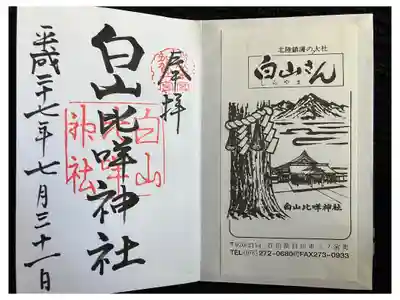 奉拝
白山比咩神社
平成二十七年七月三十一日
白山
比咩
神社
北陸鎮護の大社
白山さん
しらやま
白山比咩神社
〒920-2114 石川県白山市三ノ宮町
TEL(076)272-0680㈹FAX273-0933